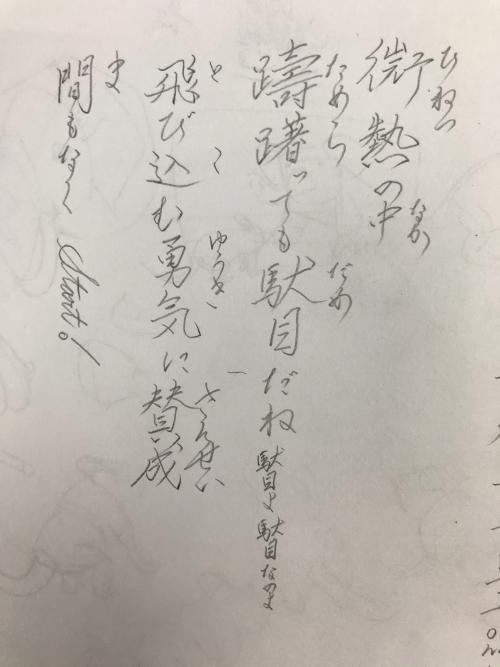 微熱の中
びねつ なか
躊躇っても駄目だね 駄目よ駄目なのよ
ためら だめ
飛び込む勇気に賛成
と こ ゆうき さんせい
間もなく Start!
ま